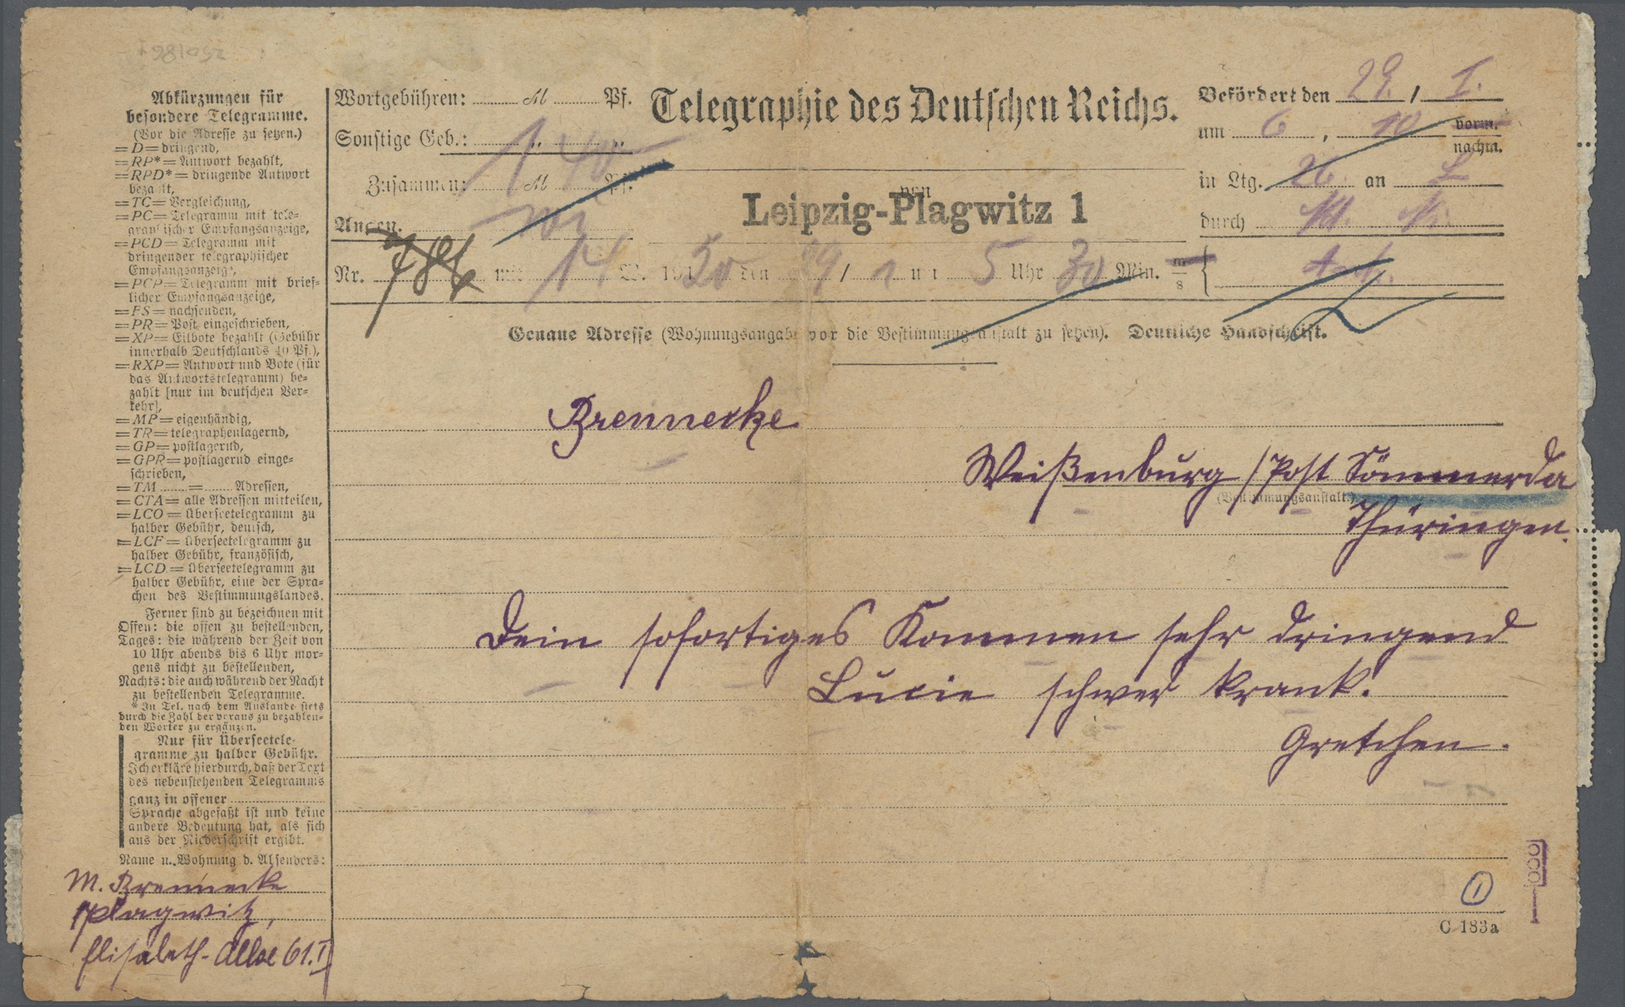 Abkürzungen für
besondere Telegramme.
(Vor die Adresse zu setzen.)
=D= dringend,
=RP*= Antwort bezahlt,
=RPD*= dringende Antwort
bezahlt,
=TC= Vergleichung,
=PC= Telegramm mit tele-
graphischer Empfangsanzeige,
=PCD= Telegramm mit
dringender telegraphischer
Empfangsanzeige,
=PCP= Telegramm mit brief-
licher Empfangsanzeige,
=FS= nachsenden,
=PR= Post eingeschrieben,
=XP= Eilbote bezahlt (Gebühr
innerhalb Deutschlands 40 Pf.),
=RXP= Antwort und Bote (für
das Antwortstelegramm) be-
zahlt [nur im deutschen Ver-
kehr],
=MP= eigenhändig,
=TR= telegraphenlagernd,
=GP= postlagernd,
=GPR= postlagernd einge-
schrieben,
=TM ...... = ...... Adressen,
=CTA= alle Adressen mitteilen,
=LCO= Überseetelegramm zu
halber Gebühr, deutsch,
=LCF= Überseetelegramm zu
halber Gebühr, französisch,
=LCD= Überseetelegramm zu
halber Gebühr, eine der Spra-
chen des Bestimmungslandes.
Ferner sind zu bezeichnen mit
Offen: die offen zu bestellenden,
Tages: die während der Zeit von
10 Uhr abends bis 6 Uhr mor-
gens nicht zu bestellenden,
Nachts: die auch während der Nacht
zu bestellenden Telegramme.
* In Tel. nach dem Auslande stets
durch die Zahl der voraus zu bezahlen-
den Wörter zu ergänzen.
Nur für Überseetele-
gramme zu halber Gebühr.
Ich erkläre hierdurch, daß der Text
des nebenstehenden Telegramms
ganz in offener
Sprache abgefaßt ist und keine
andere Bedeutung hat, als sich
aus der Niederschrift ergibt.
Name u. Wohnung d. Absenders:
M. Brennecke
Plagwitz,
Elisabeth-Allee 61.I
Wortgebühren: M Pf.
Sonstige Geb.:
1 40
Zusammen: M Pf.
Angen.
Telegraphie des Deutschen Reichs.
von
Leipzig-Plagwitz 1
Befördert den 29. / I.
um 6, 10 vorm.
nachm.
in Ltg. 26 an L
durch
Nr. 786 mit 14 W. 1920 den 29/1 um 5 Uhr 30 Min. m/s
Genaue Adresse (Wohnungsangabe vor die Bestimmungsanstalt zu setzen). Deutliche Handschrift.
Brennecke
Weißenburg /Post Sömmerda
(Bestimmungsanstalt.)
Thüringen.
Dein sofortiges Kommen sehr dringend
Lucie schwer krank.
Gretchen.
1
C 183a